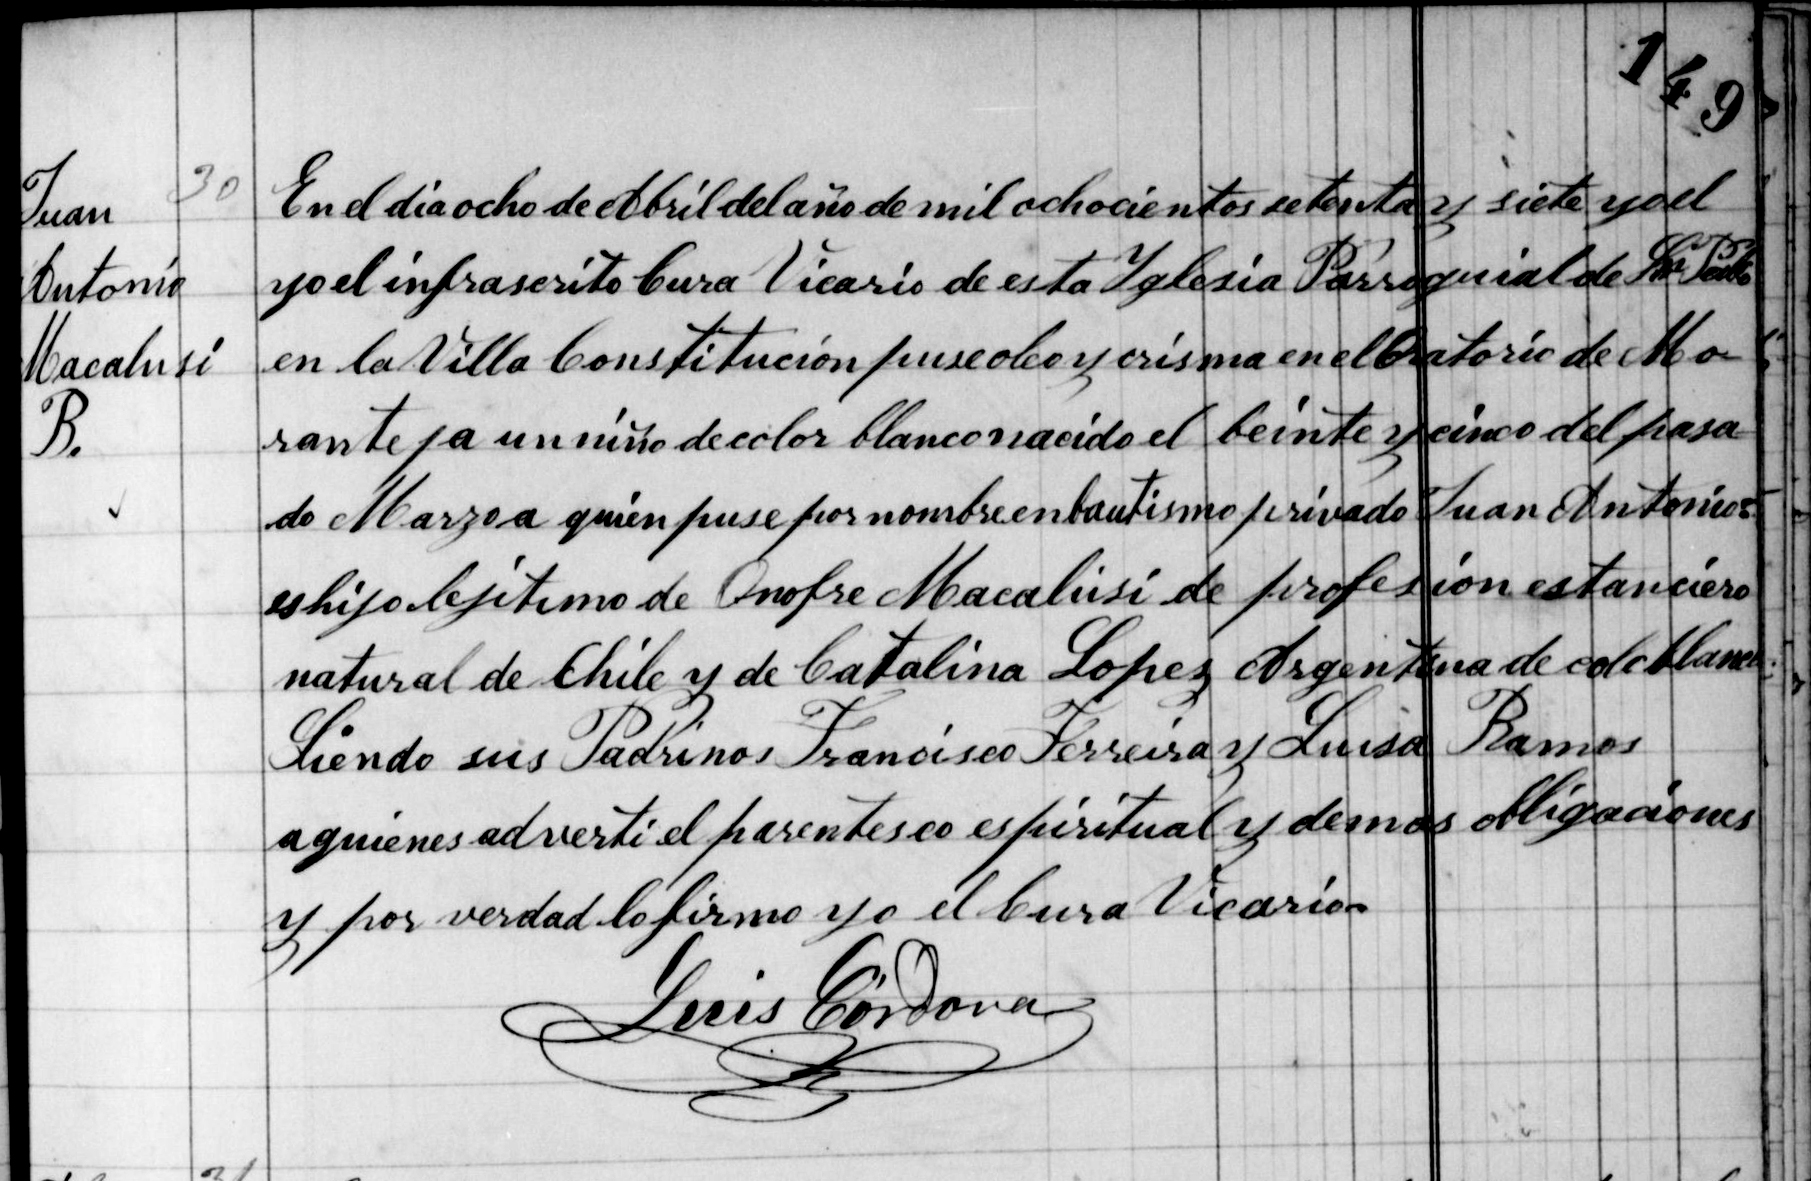 149
Juan
Antonio
Macalusi
B.
30
En el dia ocho de Abril del año de mil ochocientos setenta y siete yo el
yo el infrascrito Cura Vicario de esta Yglesia Parroquial de
en la Villa Constitución puse oleo y crisma en el Oratorio de Mo-
rante, a un niño de color blanco nacido el beinte y cinco del pasa
do Marzo a quien puse por nombre en bautismo privado Juan Antonio:
es hijo lejitimo de Onofre Macalusi de profesion estanciero
natural de Chile y de Catalina Lopez Argentina de colo blanco.
Siendo sus Padrinos Francisco Ferreira y Luisa Ramos
a quienes adverti el parentesco espiritual y demas obligaciones
y por verdad lo firmo yo el Cura Vicario
Luis Córdova
31